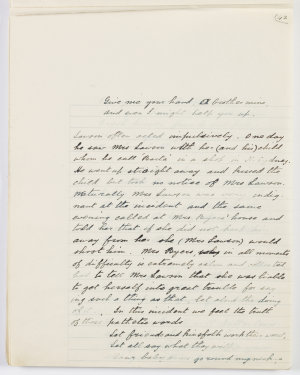 42
Give me your hand, O brother mine,
and even I might help you up.
Lawson often acted impulsively. One day
he saw Mrs Lawson with her (and his) child
whom he call 'Barta' in a shop in
He went up straight away and kissed the
child but took no notice of Mrs Lawson.
Naturally Mrs Lawson was indig-
nant at the incident and the same
evening called at Mrs Byers' house and
told her that if she did not keep
away from her she (Mrs Lawson) would
shoot him. Mrs Byers in all moments
of difficulty is extremely
but to tell Mrs Lawson that she was liable
to get herself into great trouble for say-
ing such a thing as that, let alone the doing
of it. In this incident we feel the truth
of those pathetic words
Let friends and kinsfolk work their worst,
Let all say what they
baby go round my neck